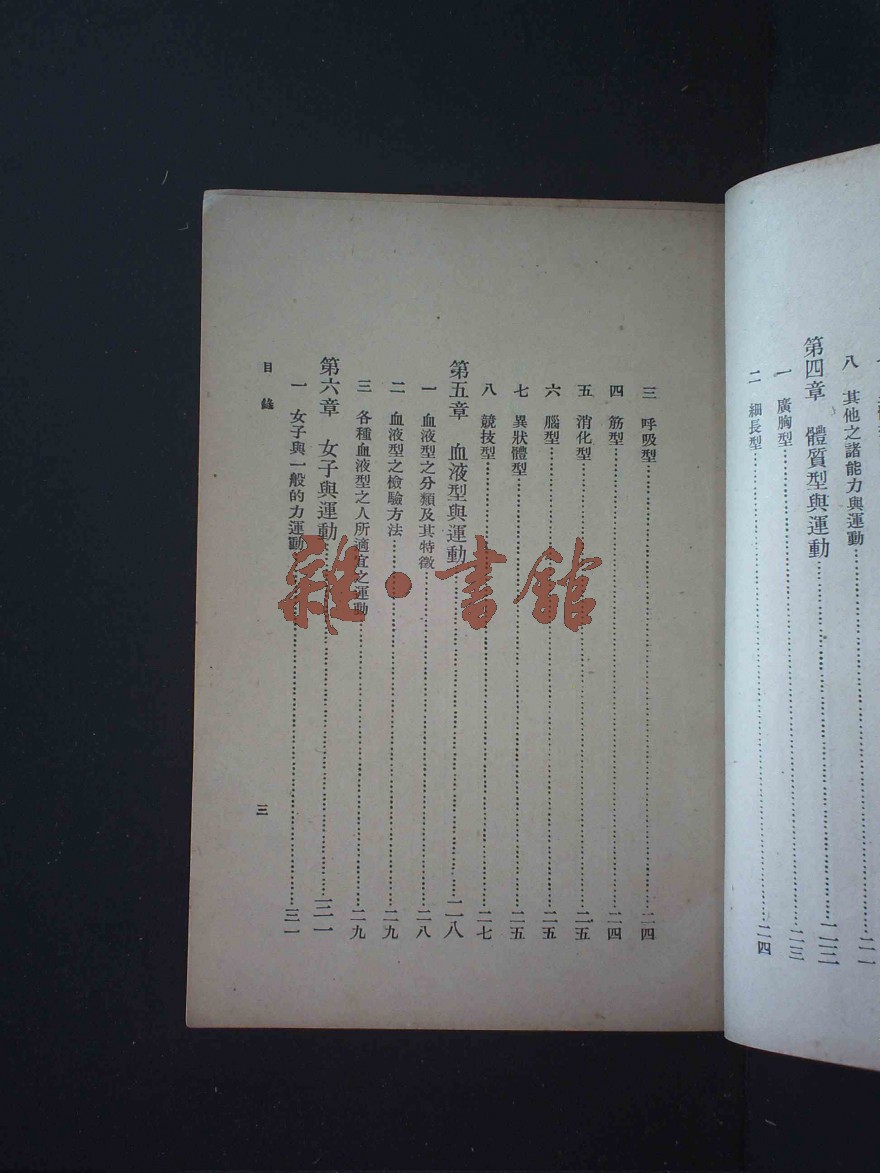 八 其他之諸能力與運動……二一
第四章 體質型與運動……二三
一 廣胸型……二三
二 細長型……二四
三 呼吸型……二四
四 筋型……二四
五 消化型……二五
六 腦型……二五
七 異狀體型……二五
八 競技型……二七
第五章 血液型與運動……二八
一 血液型之分類及其特徵……二八
二 血液型之檢驗方法……二九
三 各種血液型之人所適宜之運動……二九
第六章 女子與運動……三一
一 女子與一般的力運動……三一
目錄
三
雜·書館